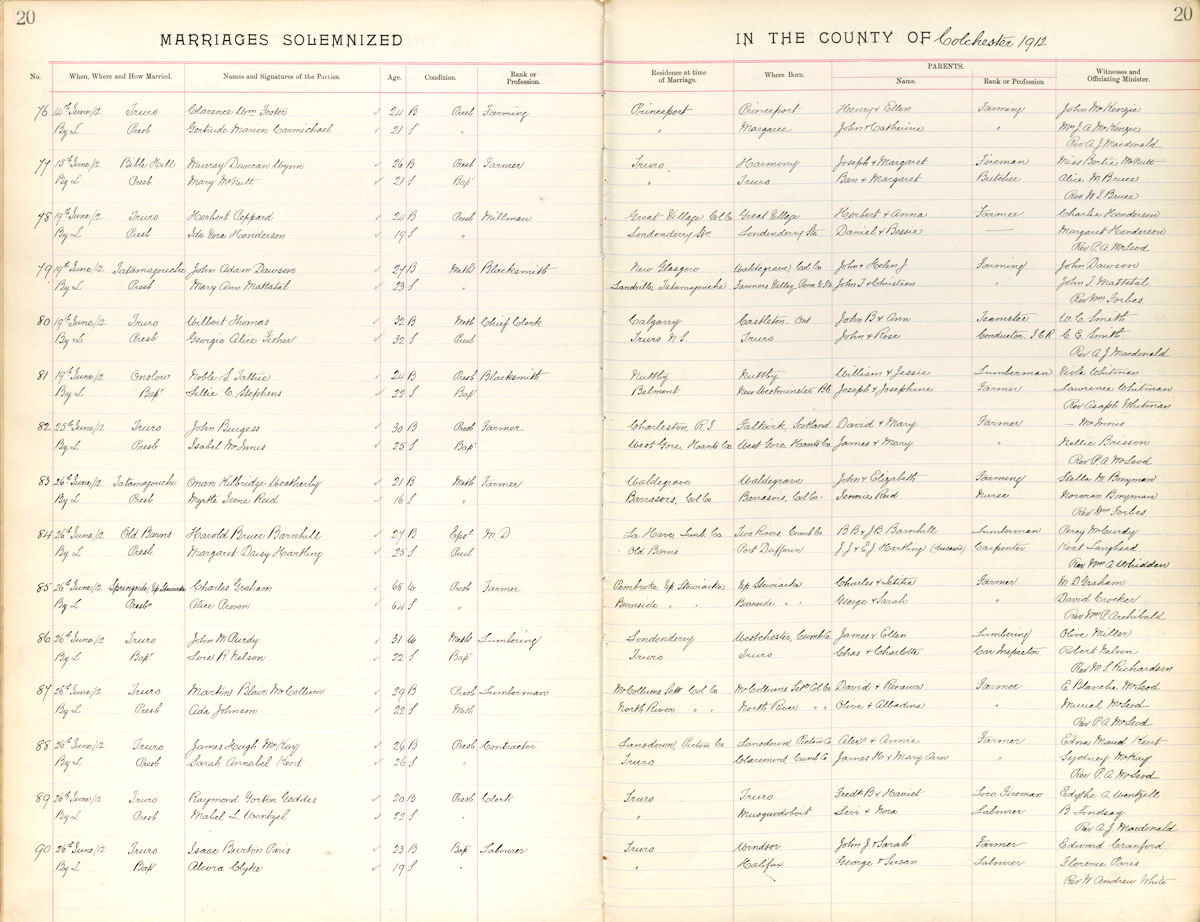 20
MARRIAGES SOLEMNIZED
IN THE COUNTY OF Colchester 1912
20
No. When, Where and How Married. Names and Signatures of the Parties. Age. Condition. Rank or Profession. Residence at time of Marriage. Where Born. PARENTS. Name. Rank or Profession Witnesses and Officiating Minister.
76 14th June/12 Truro Clarence Wm Foster 24 B Presb Farming Princeport Princeport Henry & Ellen Farming John McKenzie
By L Presb Gertrude Marion Carmichael 21 S " " Margaree John & Catherine " Mrs J. A. McKenzie
Rev A. J. Macdonald
77 15th June/12 Bible Hill Murray Duncan Wynn 26 B Presb Farmer Truro Harmony Joseph & Margaret Fireman Miss Bertie McNutt
By L Presb Mary McNutt 21 S Bapt " Truro Ban & Margaret Butcher Alice M Bruce
Rev W. T. Bruce
78 19th June/12 Truro Herbert Peppard 24 B Presb Millman Great Village Col Co Great Village Herbert & Anna Farmer Charlie Henderson
By L Presb Ida Vera Henderson 19 S " Londonderry Stn Londonderry Stn Daniel & Bessie — Margaret Henderson
Rev P. A. McLeod
79 19th June/12 Tatamagouche John Adam Dawson 27 B Meth Blacksmith New Glasgow Waldegrave Col Co John & Helen J Farming John Dawson
By L Presb Mary Ann Mattatal 23 S " Sandville Tatamagouche Farmers Valley, Penn U.S. John T & Christien " John T. Mattatal
Rev Wm Forbes
80 19th June/12 Truro Wilbert Thomas 32 B Meth Chief Clerk Calgarry Castleton Ont John B & Ann Teamster W. C. Smith
By L Presb Georgie Alice Fisher 32 S Presb Truro N.S. Truro John & Rose Conductor I C R C. E. Smith
Rev A. J. Macdonald
81 19th June/12 Onslow Noble S. Tattrie 24 B Presb Blacksmith Nuttby Nuttby William & Jessie Lumberman Viola Whitman
By L Bapt Lillie C. Stephens 22 S Bapt Belmont New Westminster BC Joseph & Josephine Farmer Lawrence Whitman
Rev Asaph Whitman
82 25th June/12 Truro John Burgess 30 B Presb Farmer Charleston R.I. Falkirk, Scotland David & Mary Farmer — McInnis
By L Presb Isabel McInnis 25 S Bapt West Gore Hants Co West Gore Hants Co James & Mary " Nellie Brisson
Rev P. A. McLeod
83 26th June/12 Tatamagouche Onan Kilbridge Weatherby 21 B Meth Farmer Waldegrave Waldegrave John & Elizabeth Farming Stella M. Bonyman
By L Presb Myrtle Irene Reid 16 S " Barrasois, Col Co Barrasois, Col Co Jennie Reid Nurse Norman Bonyman
Rev Wm Forbes
84 26th June/12 Old Barns Harold Bruce Barnhill 27 B Epsl M.D La Have Lunb. Co Two Rivers Cumb Co B. B & J. B Barnhill Lumberman Percy McCurdy
By L Presb Margaret Daisy Harkling 25 S Presb Old Barns Port Dufferin J. J & E. J. Harkling (deceased) Carpenter Kent Langhead
Rev Wm A. Whidden
85 26th June/12 Springside, Up Stewiacke Charles Graham 68 W Presb Farmer Pembroke Up Stewiacke Up Stewiacke Charles & Letitia Farmer M. D. Graham
By L Presb Alice Proven 64 S " Burnside " " Burnside " " George & Sarah " David Crocker
Rev Wm P. Archibald
86 26th June/12 Truro John McPurdy 31 W Meth Lumbering Londonderry Westchester, Cumb Co James & Ellen Lumbering Olive Miller
By L Bapt Loie R. Nelson 22 S Bapt Truro Truro Chas & Charlotte Car Inspector Robert Nelson
Rev M. S. Richardson
87 26th June/12 Truro Martin Blair McCollum 29 B Presb Lumberman McCollums Settt Col Co McCollums Settt Col Co David & Renewa Farmer E Blanche McLeod
By L Presb Ada Johnson 22 S Meth North River " " North River " " Olive & Albadina " Muriel McLeod
Rev P. A. McLeod
88 26th June/12 Truro James Hugh McKay 26 B Presb Contractor Lansdown, Pictou Co Lansdown, Pictou Co Alexr & Annie Farmer Edna Maud Kent
By L Presb Sarah Annabel Kent 26 S " Truro Claremont, Cumb Co James H. & Mary Ann " Sydney McKay
Rev P. A. McLeod
89 26th June/12 Truro Raymond Gorton Geddes 20 B Presb Clerk Truro Truro Fredk B & Harriet Loco Fireman Edythe A Wentzell
By L Presb Mabel L. Wentzel 22 S " " Musquodoboit Levi & Nora Labourer B. Lindsay
Rev A. J. Macdonald
90 26th June/12 Truro Isaac Burton Paris 23 B Bapt Labourer Truro Windsor John J & Sarah Farmer Edward Cranford
By L Bapt Alvora Clyke 19 S " " Halifax George & Susan Labourer Florence Paris
Rev W. Andrew White